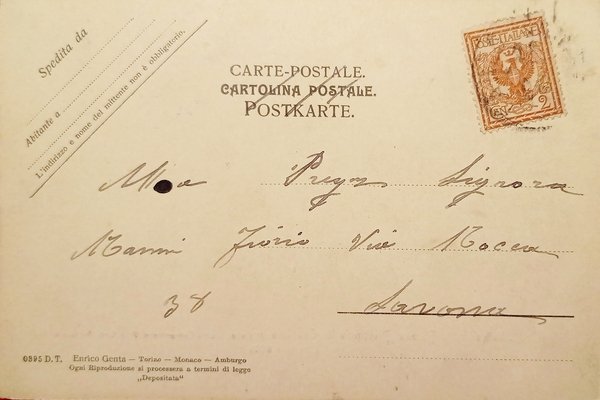 Spedita da
Abitante a
L'indirizzo e nome del mittente non è obbligatorio.
CARTE-POSTALE.
CARTOLINA POSTALE.
POSTKARTE.
POSTE ITALIANE
2
Signora
Via
38
Savona
0895 D.T. Enrico Genta — Torino — Monaco — Amburgo
Ogni Riproduzione si processera a termini di legge
„Depositata"